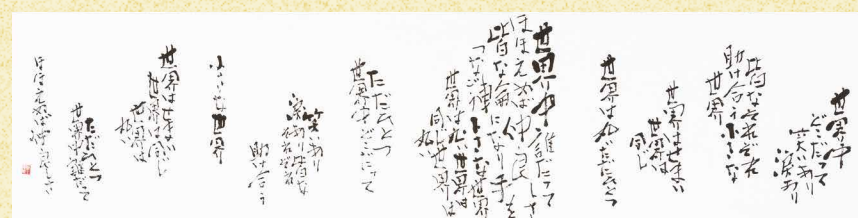 世界中
どこだって
笑いあり
涙あり
皆なそれぞれ
助け合う小さな
世界
世界はせまい
世界は
同じ
世界は丸いただひとつ
世界中誰だって
ほほえめば仲良しさ
皆な輪になり手を
つなごう小さな世界
世界はせまい世界は
同じ世界は
丸い
ただひとつ
世界中どこだって
笑いあり
涙あり皆な
それぞれ
助け合う
小さな世界
世界はせまい
世界は同じ
世界は
丸い
ただひとつ
世界中誰だって
ほほえめば仲良しさ